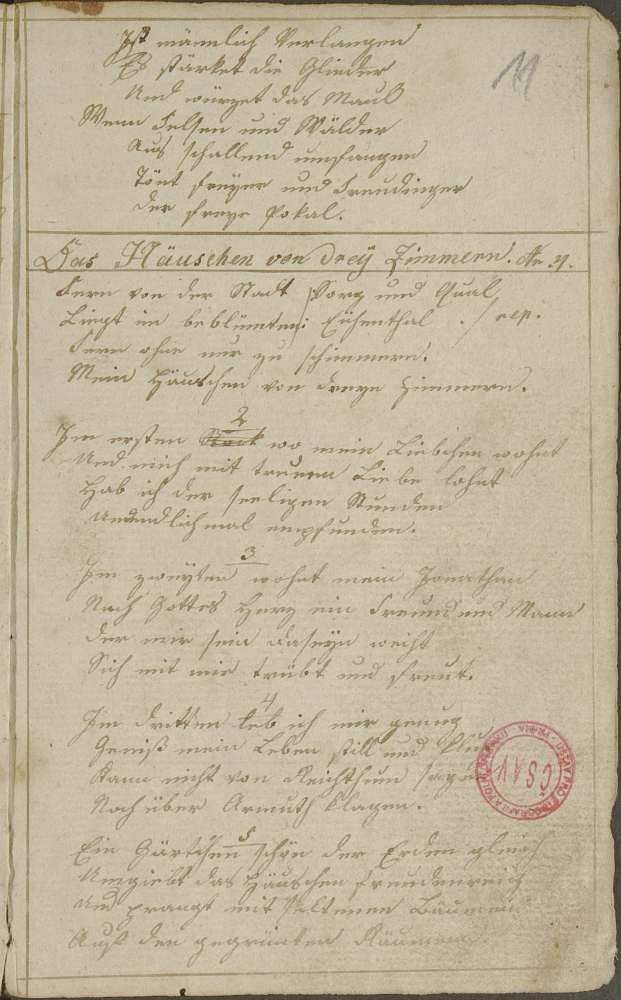 Ist männlich Verlangen
Es stärket die Glieder
Und würzet das Mauß
Wenn Felsen und Wälder
Aus schallend umfangen
Tönt freyer und freudinger
Der freye Pokal.
11
Das Häuschen von dreÿ Zimmern. Nr 21.
Fern von der Stadt Sorg und Qual
Liegt im beblümten Eichenthal ./. rep.
Fern ohne nur zu schimmern.
Mein Häuschen von dreyn Zimmern.
2
Im ersten wo mein Liebchen wohnt
Und mich mit treuen Liebe lohnt
Hab ich der seeligen Stunden
Unendlichmal empfunden.
3
Im zweyten wohnt mein Jonathan
Nach Gottes Herz ein Freund und Mann
Der mir sein Daseyn weiht
Sich mit mir trübt und freut.
4
Im dritten leb ich mir genug
Genieß mein Leben still und klug
Kann nicht von Reichthum sagen
Noch über Armuth klagen.
5
Ein Gärtchen schön der Erden gleich
Umgiebt das Häuschen freudenreich
Und prangt mit seltenen Bäumen
Auf den gegrünten Räumen
ČSAV